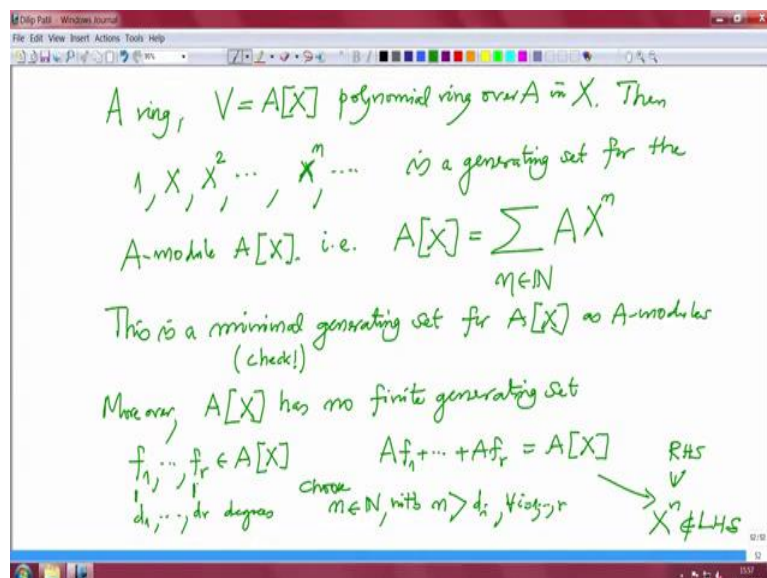 Dilip Patil - Windows Journal
File Edit View Insert Actions Tools Help
A ring, V = A[X] polynomial ring over A in X. Then
1, X, X², ..., Xⁿ, .... is a generating set for the
A-module A[X]. i.e. A[X] = ∑ A Xⁿ
n∈ℕ
This is a minimal generating set for A[X] as A-modules
(check!)
Moreover, A[X] has no finite generating set
f₁, ..., fᵣ ∈ A[X] Af₁ + ... + Afᵣ = A[X] RHS
d₁, ..., dᵣ degrees choose n∈ℕ, with n > dᵢ, ∀ i=1,..,r Xⁿ ∉ LHS
52/52
52
1557